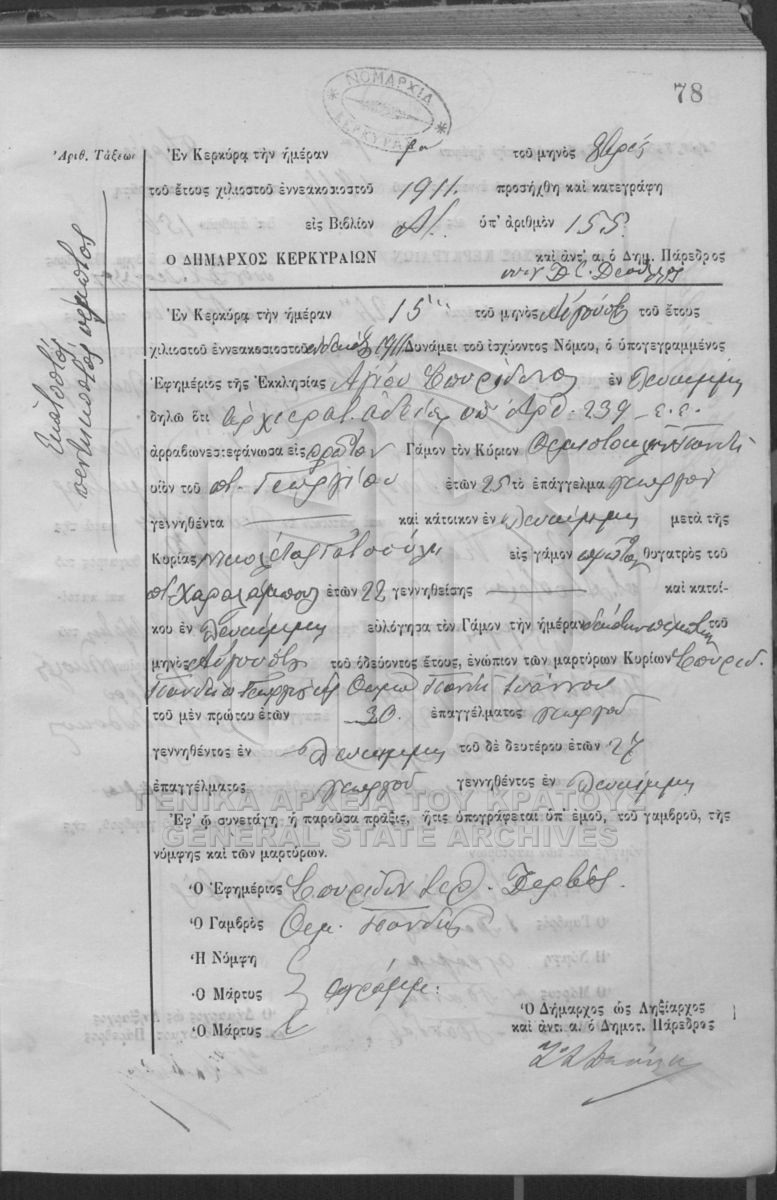 78
ΝΟΜΑΡΧΙΑ
ΚΕΡΚΥΡΑΣ
Ἀριθ. Τάξεως
Ἑκατοστὸς
πεντηκοστὸς πέμπτος
Ἐν Κερκύρᾳ τὴν ἡμέραν τοῦ μηνὸς
τοῦ ἔτους χιλιοστοῦ ἐννεακοσιοστοῦ 1911. προσήχθη καὶ κατεγράφη
εἰς Βιβλίον Α/. ὑπ' ἀριθμὸν 155
Ο ΔΗΜΑΡΧΟΣ ΚΕΡΚΥΡΑΙΩΝ καὶ ἀντ' α. ὁ Δημ. Πάρεδρος
Ἐν Κερκύρᾳ τὴν ἡμέραν 15 τοῦ μηνὸς Αὐγούστου τοῦ ἔτους
χιλιοστοῦ ἐννεακοσιοστοῦ ἑνδεκάτου 1911 Δυνάμει τοῦ ἰσχύοντος Νόμου, ὁ ὑπογεγραμμένος
Ἐφημέριος τῆς Ἐκκλησίας Ἁγίου Σπυρίδωνος ἐν Λευκίμμῃ
δηλῶ ὅτι ἀρχιερατ. ἀδείᾳ ὑπ' ἀρθ. 239 ε.ε.
ἀρραβωνεστεφάνωσα εἰς πρῶτον Γάμον τὸν Κύριον Θεμιστοκλῆν Πανδῆ
υἱὸν τοῦ π. Γεωργίου ἐτῶν 25 τὸ ἐπάγγελμα γεωργοῦ
γεννηθέντα καὶ κάτοικον ἐν Λευκίμμῃ μετὰ τῆς
Κυρίας εἰς γάμον πρῶτον θυγατρὸς τοῦ
π. Χαραλάμπους ἐτῶν 22 γεννηθείσης καὶ κατοί-
κου ἐν Λευκίμμῃ εὐλόγησα τὸν Γάμον τὴν ἡμέραν δεκάτην πέμπτην τοῦ
μηνὸς Αὐγούστου τοῦ ὁδεύοντος ἔτους, ἐνώπιον τῶν μαρτύρων Κυρίων Σπυρίδ.
Πανδῆ Γεωργίου Θωμᾶ Πανδῆ Ἰωάννου
τοῦ μὲν πρώτου ἐτῶν 30. ἐπαγγέλματος γεωργοῦ
γεννηθέντος ἐν Λευκίμμῃ τοῦ δὲ δευτέρου ἐτῶν 27
ἐπαγγέλματος γεωργοῦ γεννηθέντος ἐν Λευκίμμῃ
ΓΕΝΙΚΑ ΑΡΧΕΙΑ ΤΟΥ ΚΡΑΤΟΥΣ
Ἐφ' ᾧ συνετάγη ἡ παροῦσα πρᾶξις, ἥτις ὑπογράφεται ὑπ' ἐμοῦ, τοῦ γαμβροῦ, τῆς
GENERAL STATE ARCHIVES
νύμφης καὶ τῶν μαρτύρων.
Ὁ Ἐφημέριος Σπυρίδων ἱερ.
Ὁ Γαμβρὸς Θεμ. Πανδῆς
Ἡ Νύμφη
Ὁ Μάρτυς ἀγράμμ:
Ὁ Μάρτυς
Ὁ Δήμαρχος ὡς Ληξίαρχος
καὶ ἀντ. α. ὁ Δημοτ. Πάρεδρος